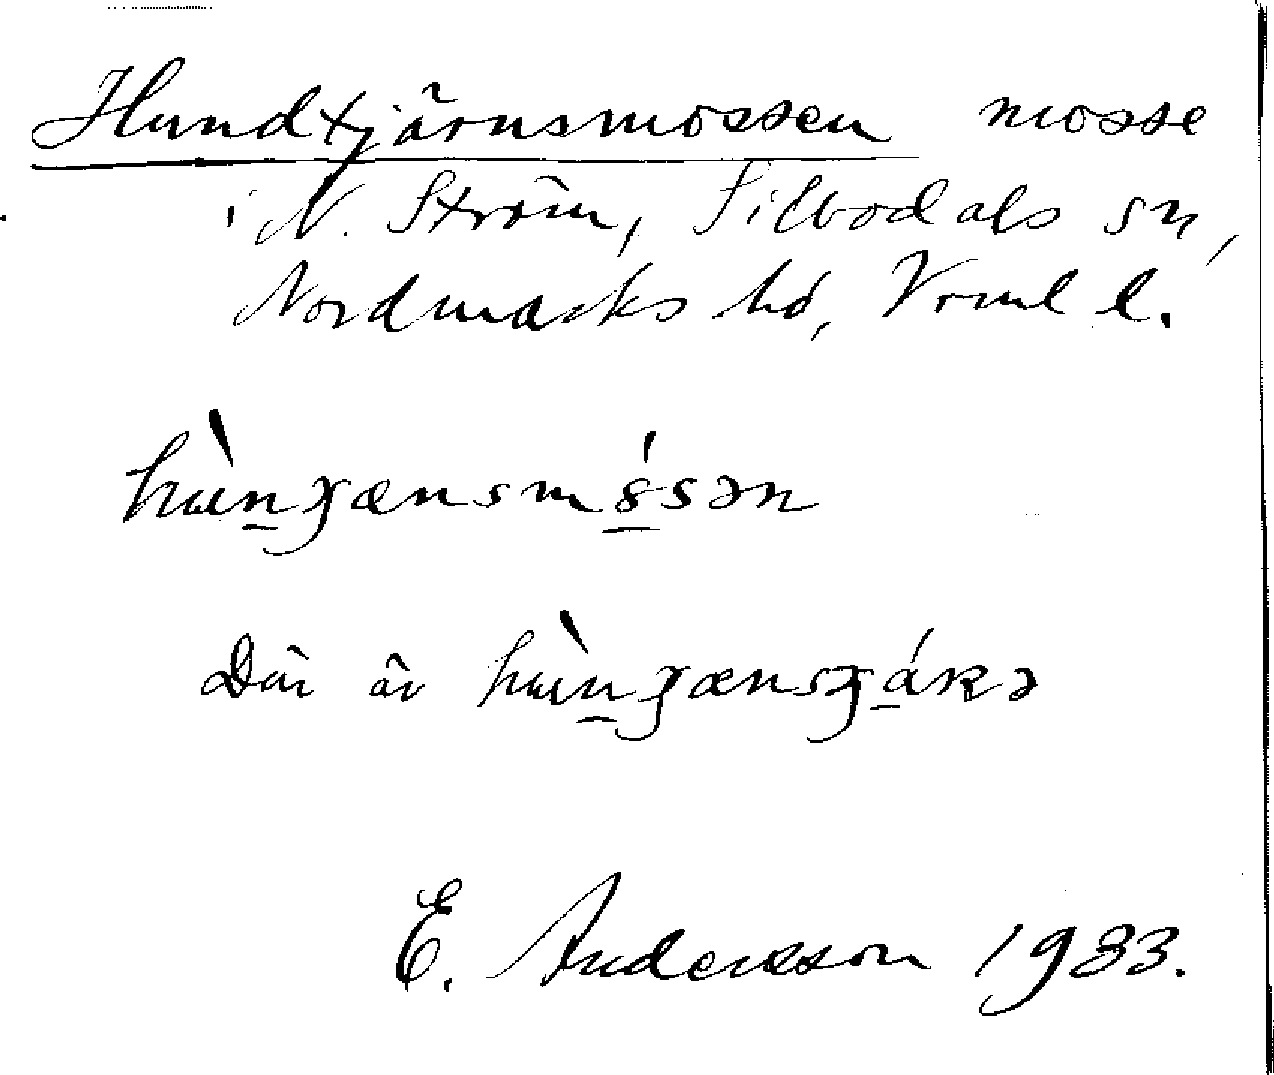 Hundtjärnsmossen mosse
i N. Ström, Silbodals sn,
Nordmarks hd, Värml l.
hɯ̀n̲ɟænsmó̲sən
Där är hɯ̀n̲ɟænsɟá̲kə
E. Andersson 1933.